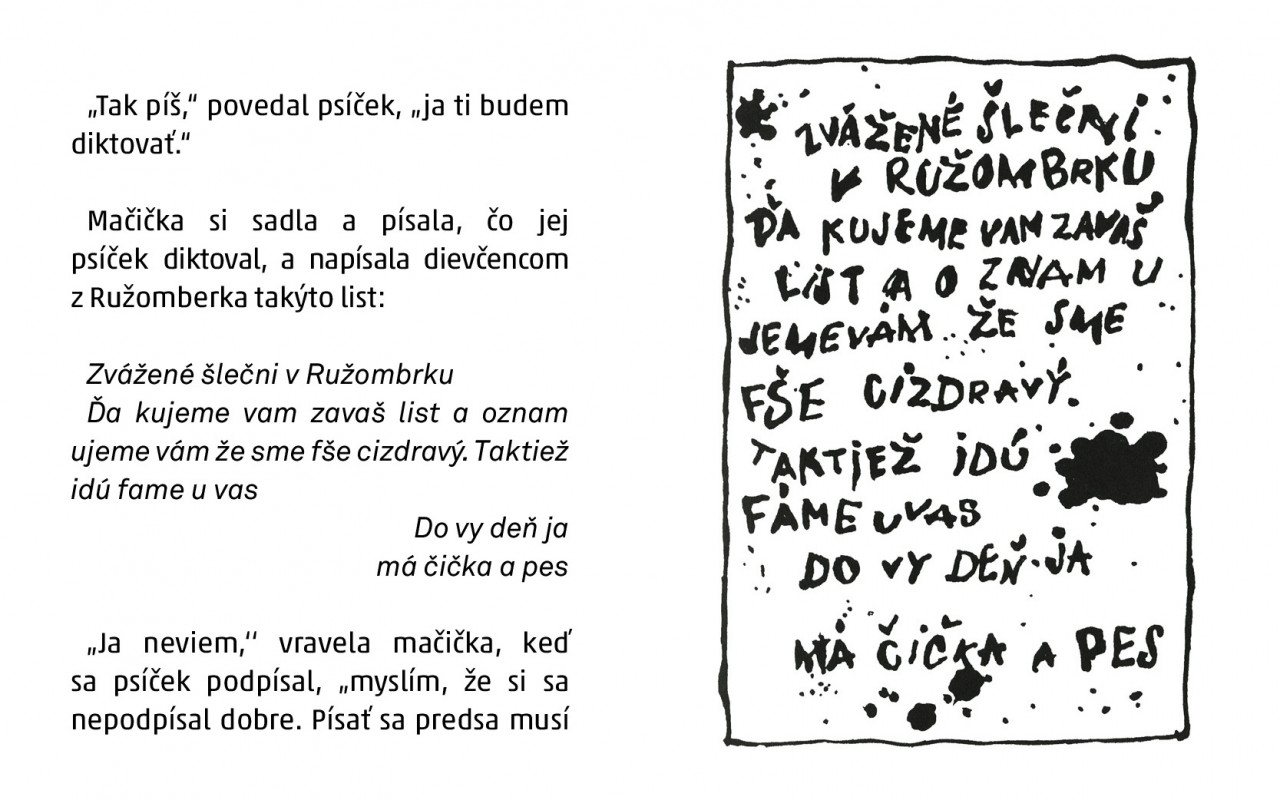 „Tak píš,“ povedal psíček, „ja ti budem
diktovať.“
Mačička si sadla a písala, čo jej
psíček diktoval, a napísala dievčencom
z Ružomberka takýto list:
Zvážené šlečni v Ružombrku
Ďa kujeme vam zavaš list a oznam
ujeme vám že sme fše cizdravý. Taktiež
idú fame u vas
Do vy deň ja
má čička a pes
„Ja neviem,‘‘ vravela mačička, keď
sa psíček podpísal, „myslím, že si sa
nepodpísal dobre. Písať sa predsa musí
ZVÁŽENÉ ŠLEČNI
V RUŽOMBRKU
ĎA KUJEME VAM ZAVAŠ
LIST A O ZNAM U
JEMEVÁM ŽE SME
FŠE CIZDRAVÝ.
TAKTIEŽ IDÚ
FAME UVAS
DO VY DEŇ JA
MÁ ČIČKA A PES